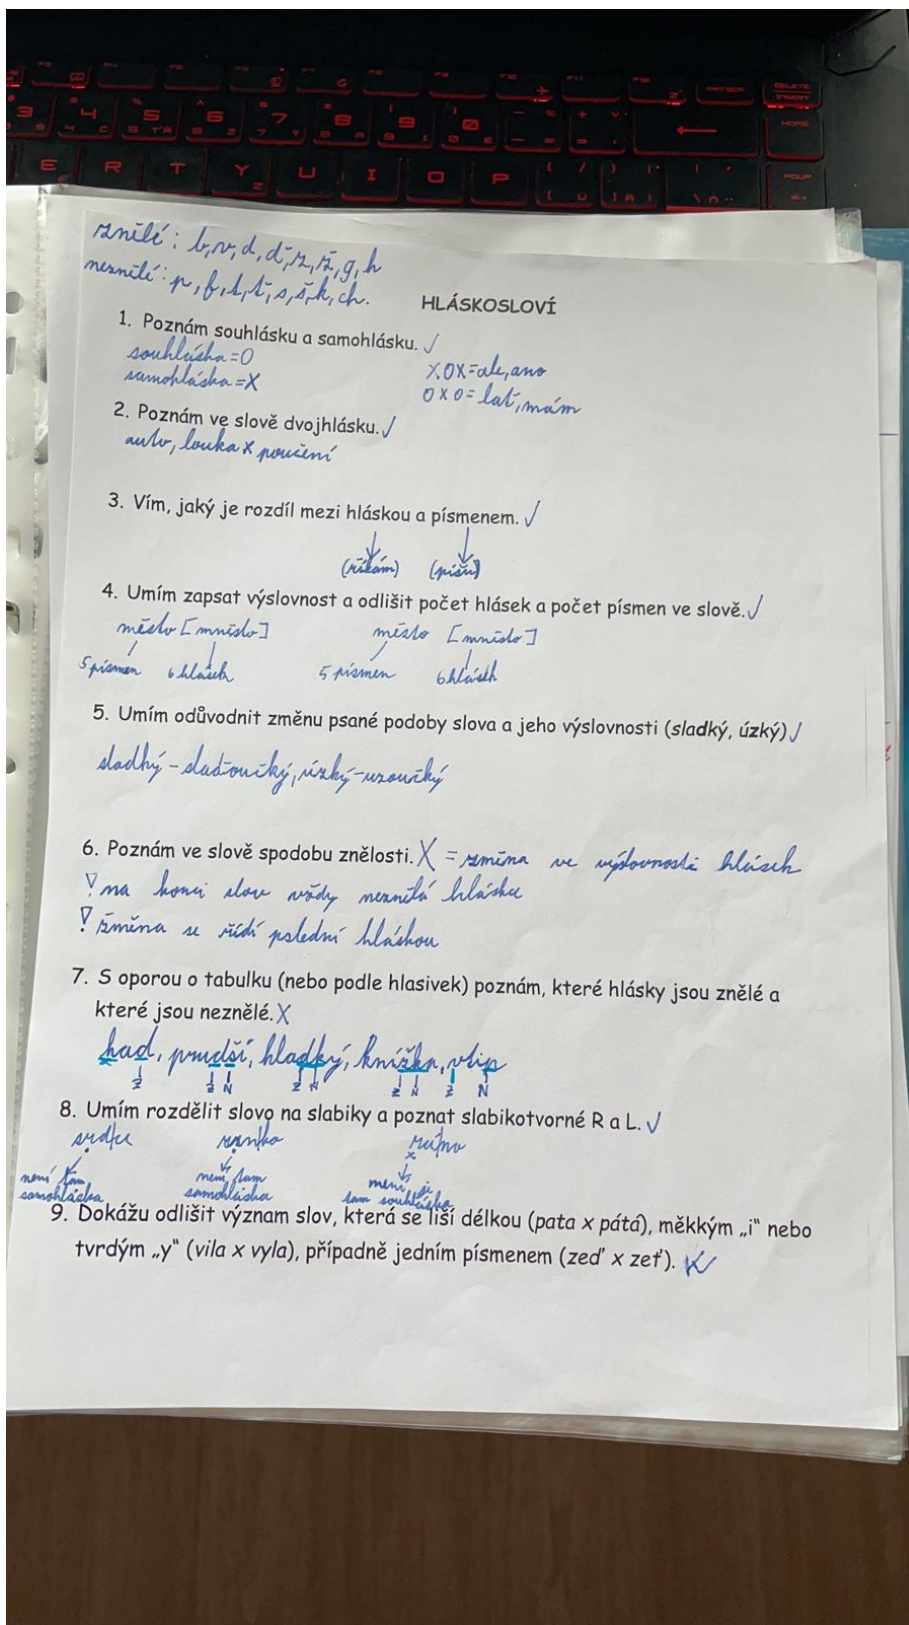 znělé: b, v, d, ď, z, ž, g, h
neznělé: p, f, t, ť, s, š, k, ch.
HLÁSKOSLOVÍ
1. Poznám souhlásku a samohlásku. ✓
souhláska=O
samohláska=X
XOX=ale, ano
OXO=lať, mám
2. Poznám ve slově dvojhlásku. ✓
auto, louka x poučení
3. Vím, jaký je rozdíl mezi hláskou a písmenem. ✓
(říkám) (píšu)
4. Umím zapsat výslovnost a odlišit počet hlásek a počet písmen ve slově. ✓
město [mňesto] město
5 písmen 6 hlásek 5 písmen 6 hlásek
5. Umím odůvodnit změnu psané podoby slova a jeho výslovnosti (sladký, úzký) ✓
sladký - slaďoučký, úzký - uzoučký
6. Poznám ve slově spodobu znělosti. X = změna ve výslovnosti hlásek
! na konci slov vždy neznělá hláska
! změna se řídí poslední hláskou
7. S oporou o tabulku (nebo podle hlasivek) poznám, které hlásky jsou znělé a
které jsou neznělé. X
had, prudší, hladký, knížka, vtip
Z Z N Z N Z N Z N
8. Umím rozdělit slovo na slabiky a poznat slabikotvorné R a L. ✓
srdce
není tam
samohláska
není tam
samohláska
není
tam souhláska
9. Dokážu odlišit význam slov, která se liší délkou (pata x pátá), měkkým „i" nebo
tvrdým „y" (vila x vyla), případně jedním písmenem (zeď x zeť).